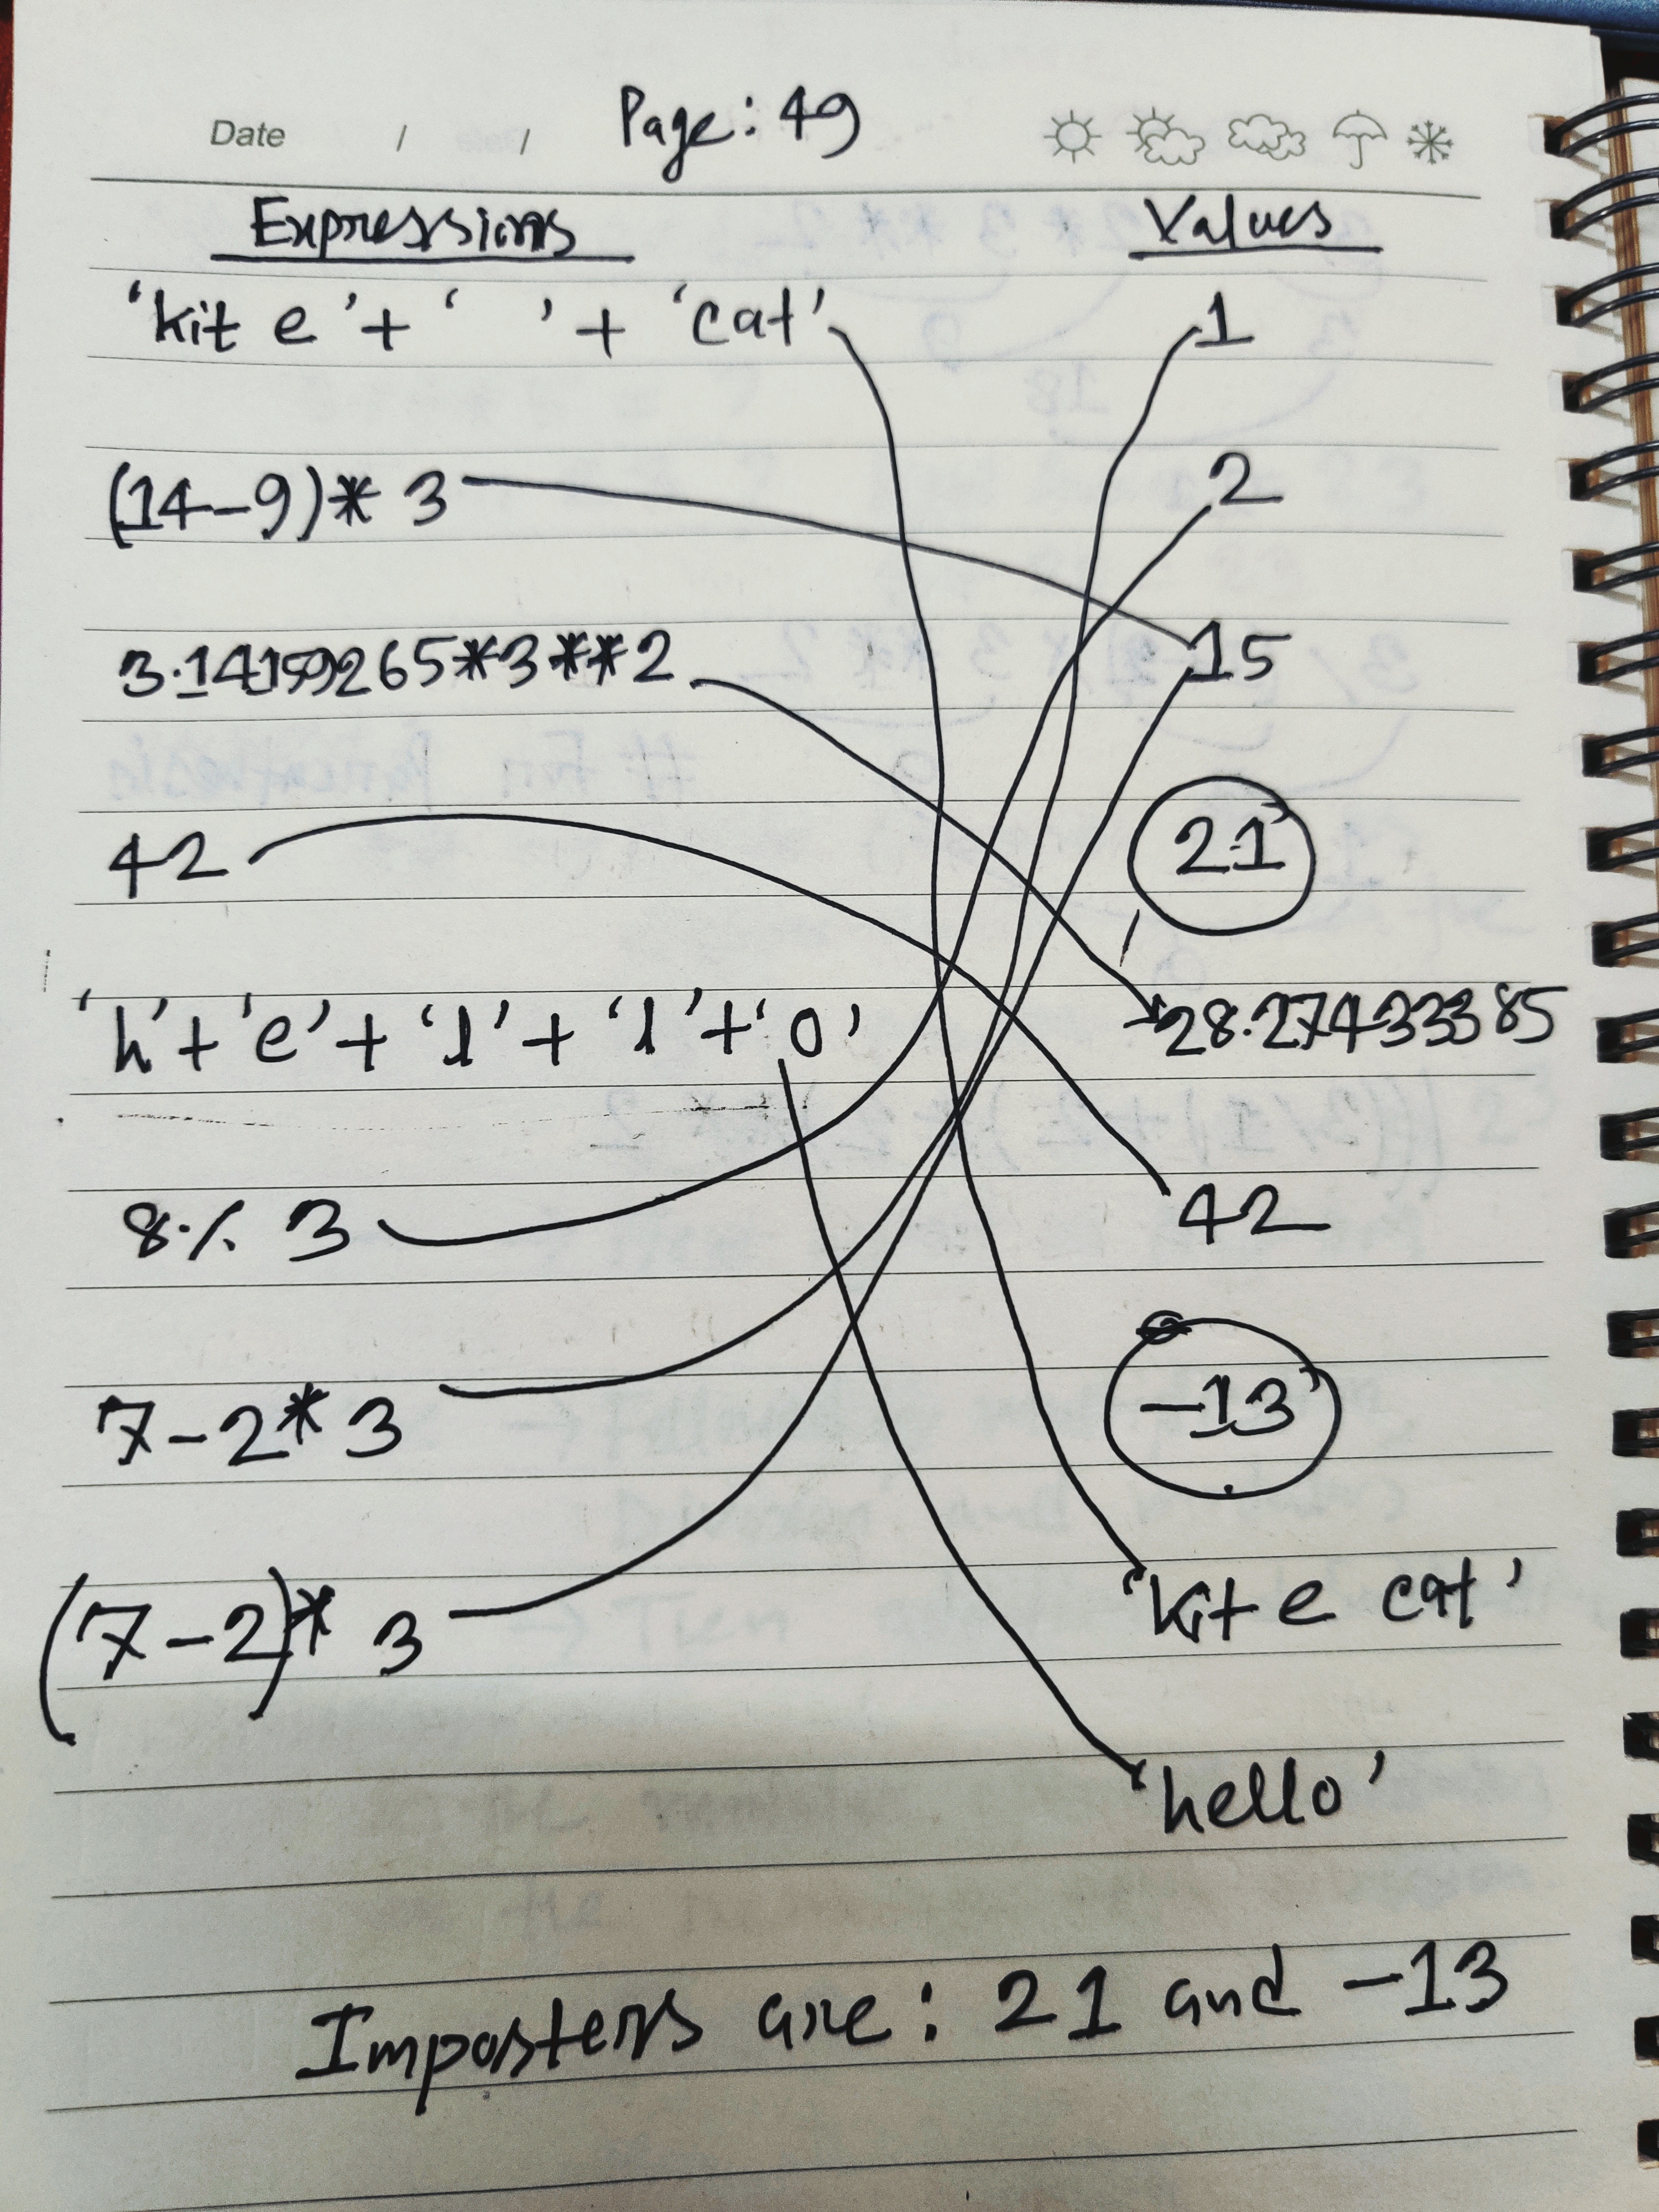 Date / / Page: 49
Expressions Values
'kit e' + ' ' + 'cat' 1
(14-9)* 3 2
3.14159265*3**2 15
42 21
'h'+'e'+'l'+'l'+'o' 28.27433385
8 % 3 42
7-2* 3 -13
(7-2)* 3 'kit e cat'
'hello'
Imposters are: 21 and -13